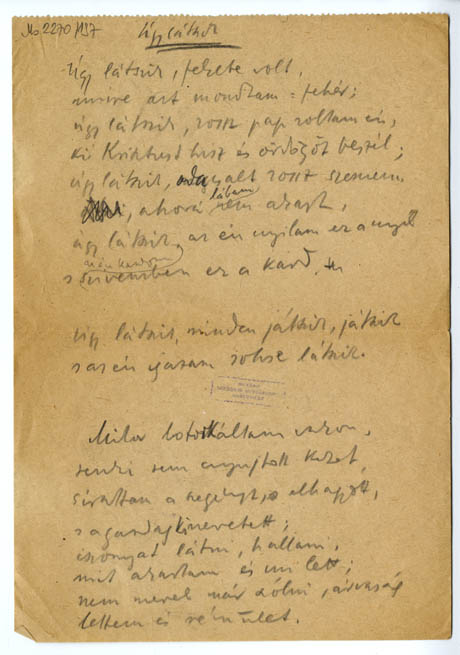 Ms 2270/197
Úgy látszik
Úgy látszik, fekete volt,
mire azt mondtam: fehér;
úgy látszik, rossz pap voltam én,
ki Krisztust hisz és ördögöt beszél;
úgy látszik, oda valt rossz szemem
, ahová lábam nem akart,
úgy látszik, az én nyilam ez a nyíl
az én kardom
s szívemben ez a kard.
Úgy látszik, minden játszik, játszik
s az én igazam sohse látszik.
Mikor botorkáltam vakon,
senki sem nyujtott kezet,
sirattam a szegényt, s elhagyott,
s a gazdag kinevetett;
iszonyat látni, hallani,
mit akartam és mi lett;
nem merek már szólni, árvaság
lettem és rémület.
MAGYAR